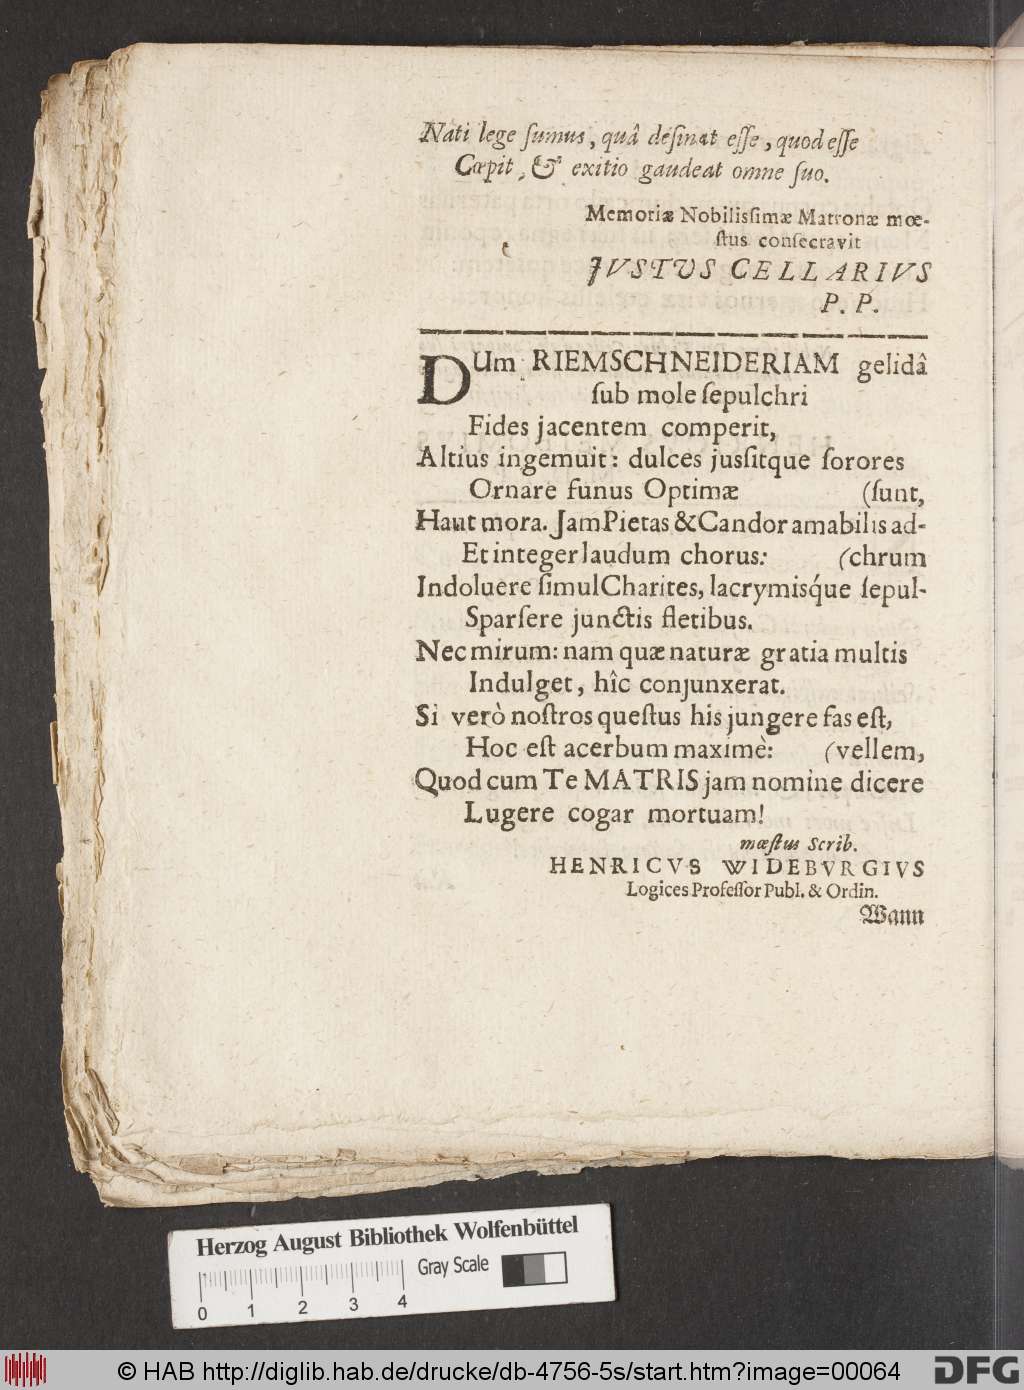 Nati lege ſumus, quâ deſinat eſſe, quod eſſe
Cœpit, & exitio gaudeat omne ſuo.
Memoriæ Nobiliſſimæ Matronæ mœ-
ſtus conſecravit
JVSTVS CELLARIVS
P. P.
DUm RIEMSCHNEIDERIAM gelidâ
ſub mole ſepulchri
Fides jacentem comperit,
Altius ingemuit: dulces jusſitque ſorores
Ornare funus Optimæ (ſunt,
Haut mora. Jam Pietas & Candor amabilis ad-
Et integer laudum chorus: (chrum
Indoluere ſimul Charites, lacrymisq́ue ſepul-
Sparſere junctis fletibus.
Nec mirum: nam quæ naturæ gratia multis
Indulget, hîc conjunxerat.
Si verò noſtros queſtus his jungere fas eſt,
Hoc eſt acerbum maximè: (vellem,
Quod cum Te MATRIS jam nomine dicere
Lugere cogar mortuam!
mœſtus Scrib.
HENRICVS WIDEBVRGIVS
Logices Profeſſor Publ. & Ordin.
Wann
Herzog August Bibliothek Wolfenbüttel
Gray Scale
0 1 2 3 4
© HAB http://diglib.hab.de/drucke/db-4756-5s/start.htm?image=00064
DFG